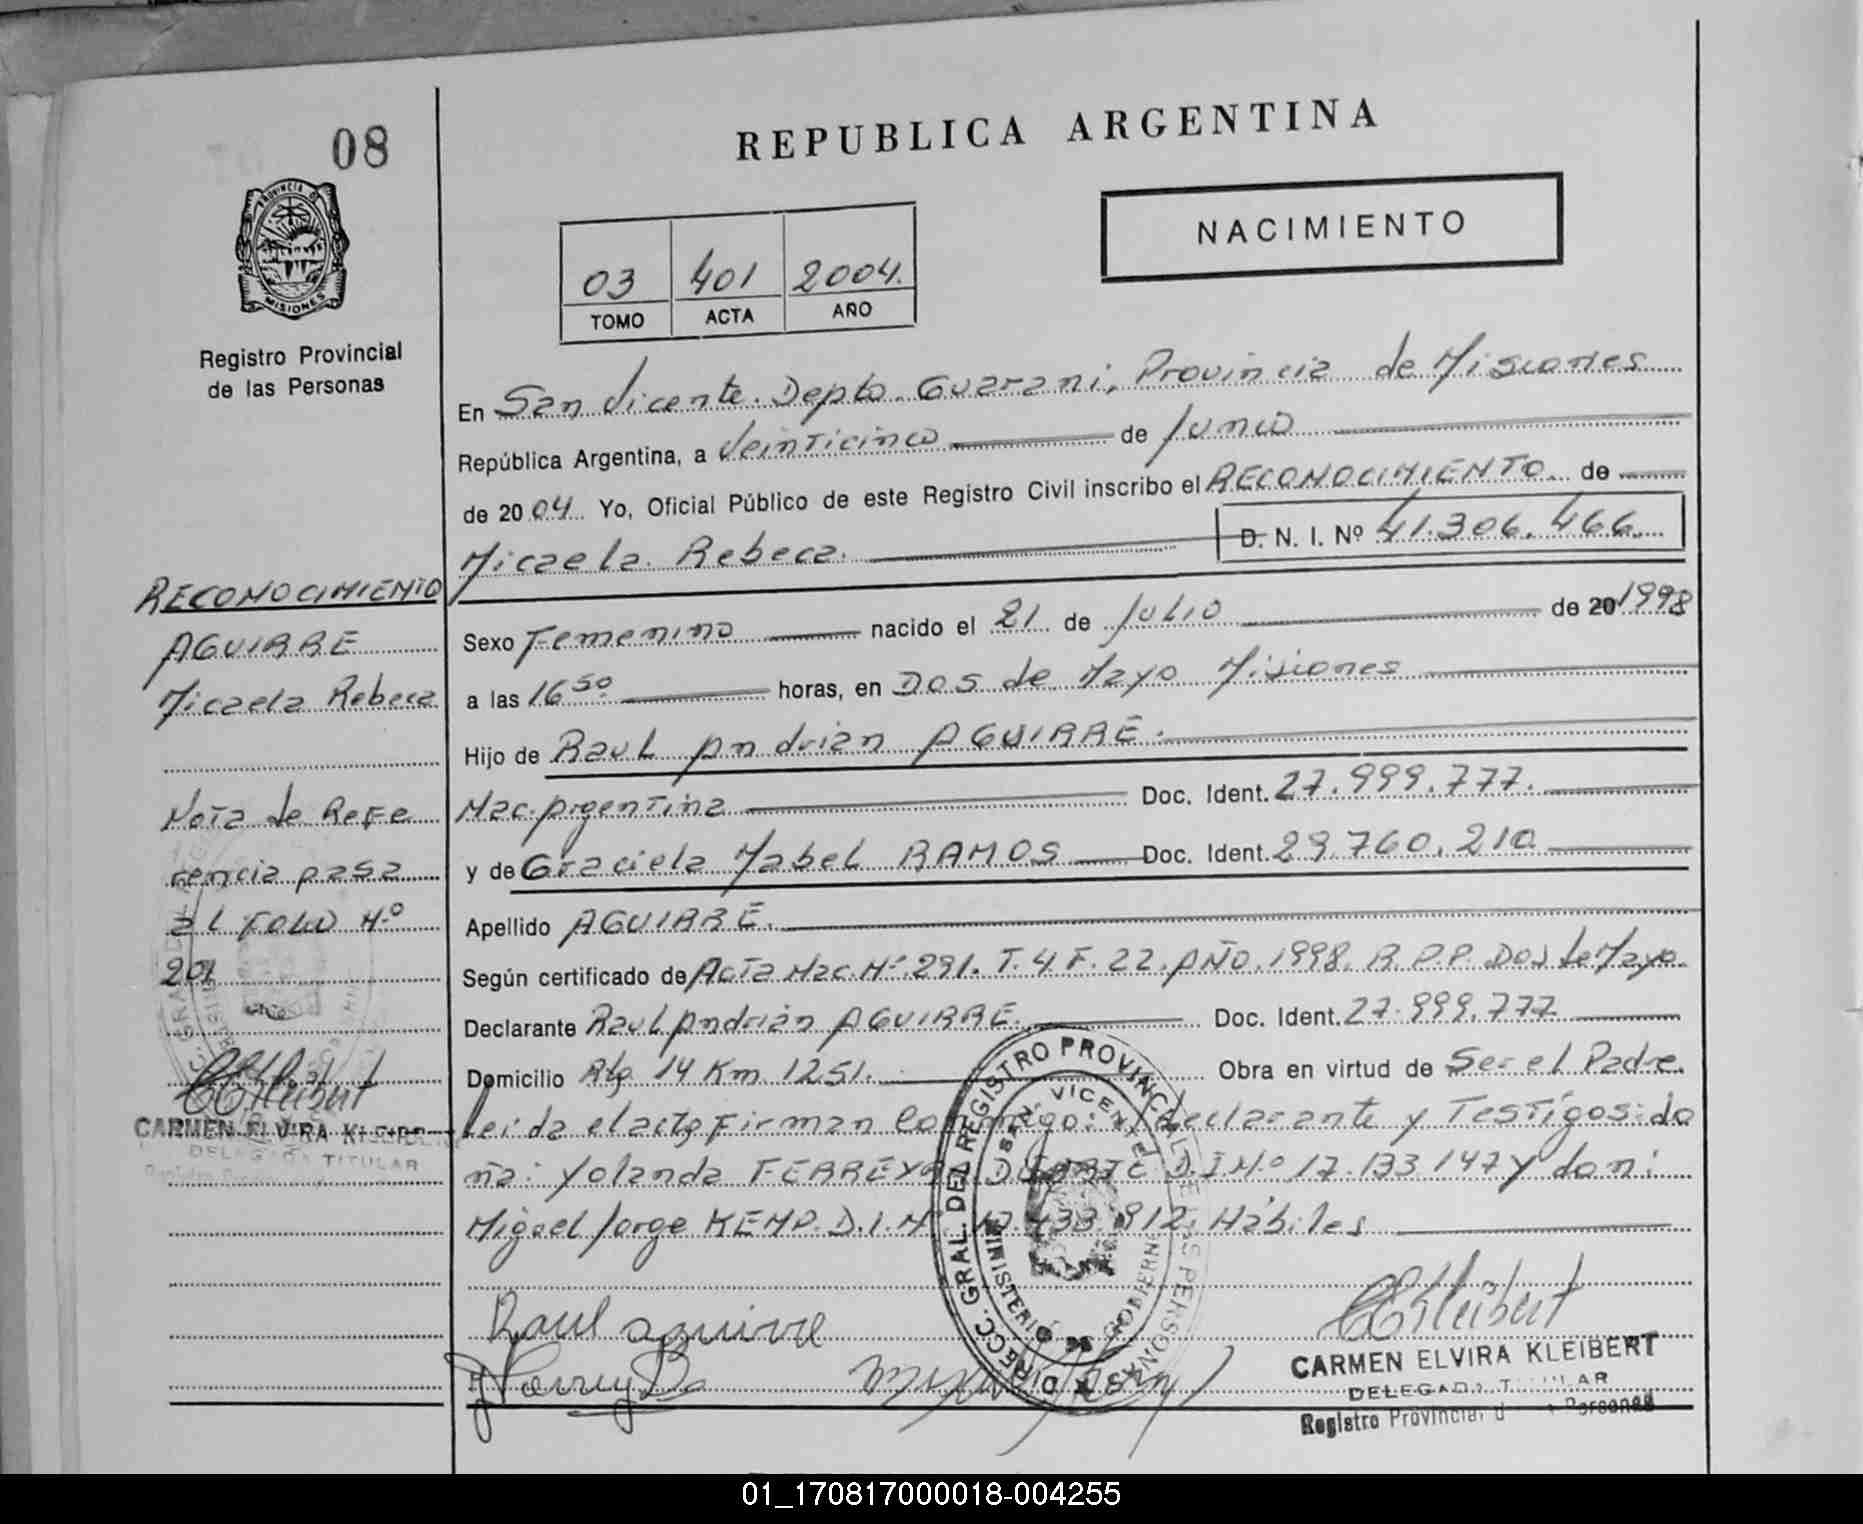 08
REPUBLICA ARGENTINA
NACIMIENTO
PROVINCIA DE
MISIONES
Registro Provincial
de las Personas
03 401 2004.
TOMO ACTA AÑO
En San Vicente. Depto. Guarani, Provincia de Misiones
República Argentina, a Veinticinco de Junio
de 2004 Yo, Oficial Público de este Registro Civil inscribo el RECONOCIMIENTO de
Micaela Rebeca. D. N. I. Nº 41.306.466
Sexo Femenino nacido el 21 de Julio de 20 1998
a las 16 50 horas, en Dos de Mayo Misiones
Hijo de Raul Andrián AGUIRRE.
Nac. Argentina Doc. Ident. 27.999.777.
y de Graciela Mabel RAMOS Doc. Ident. 29.760.210
Apellido AGUIRRE.
Según certificado de Acta Nac. Nº 291. T. 4 F. 22. AÑO. 1998. R.P.P. Dos de Mayo.
Declarante Raul Andrián AGUIRRE. Doc. Ident. 27.999.777
Domicilio Rta 14 Km 1251. Obra en virtud de Ser el Padre.
Leida el acta Firman conmigo: declarante y Testigos: do
ña: Yolanda FERREYRA DUARTE D.I.Nº 17.133.147 y don:
Miguel Jorge KEMP. D.I.Nº 17.433.912. Hábiles
Raul aguirre
CKleibert
CARMEN ELVIRA KLEIBERT
DELEGADA TITULAR
Registro Provincial de las Personas
DIRECC. GRAL. DEL REGISTRO PROVINCIAL DE LAS PERSONAS
SAN VICENTE
MINISTERIO GOBIERNO
RECONOCIMIENTO
AGUIRRE
Micaela Rebeca
Nota de Refe
rencia pasa
al FOLIO Nº
201
CKleibert
CARMEN ELVIRA KLEIBERT
DELEGADA TITULAR
01_170817000018-004255